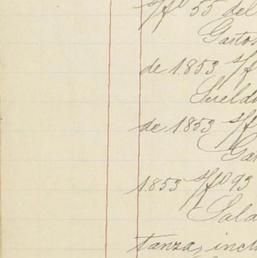 s/fº 55 del
Gastos
de 1853 s/f
Sueldo
de 1853 s/f
Ga
1853 s/fº 93
Sala
tanza, incl